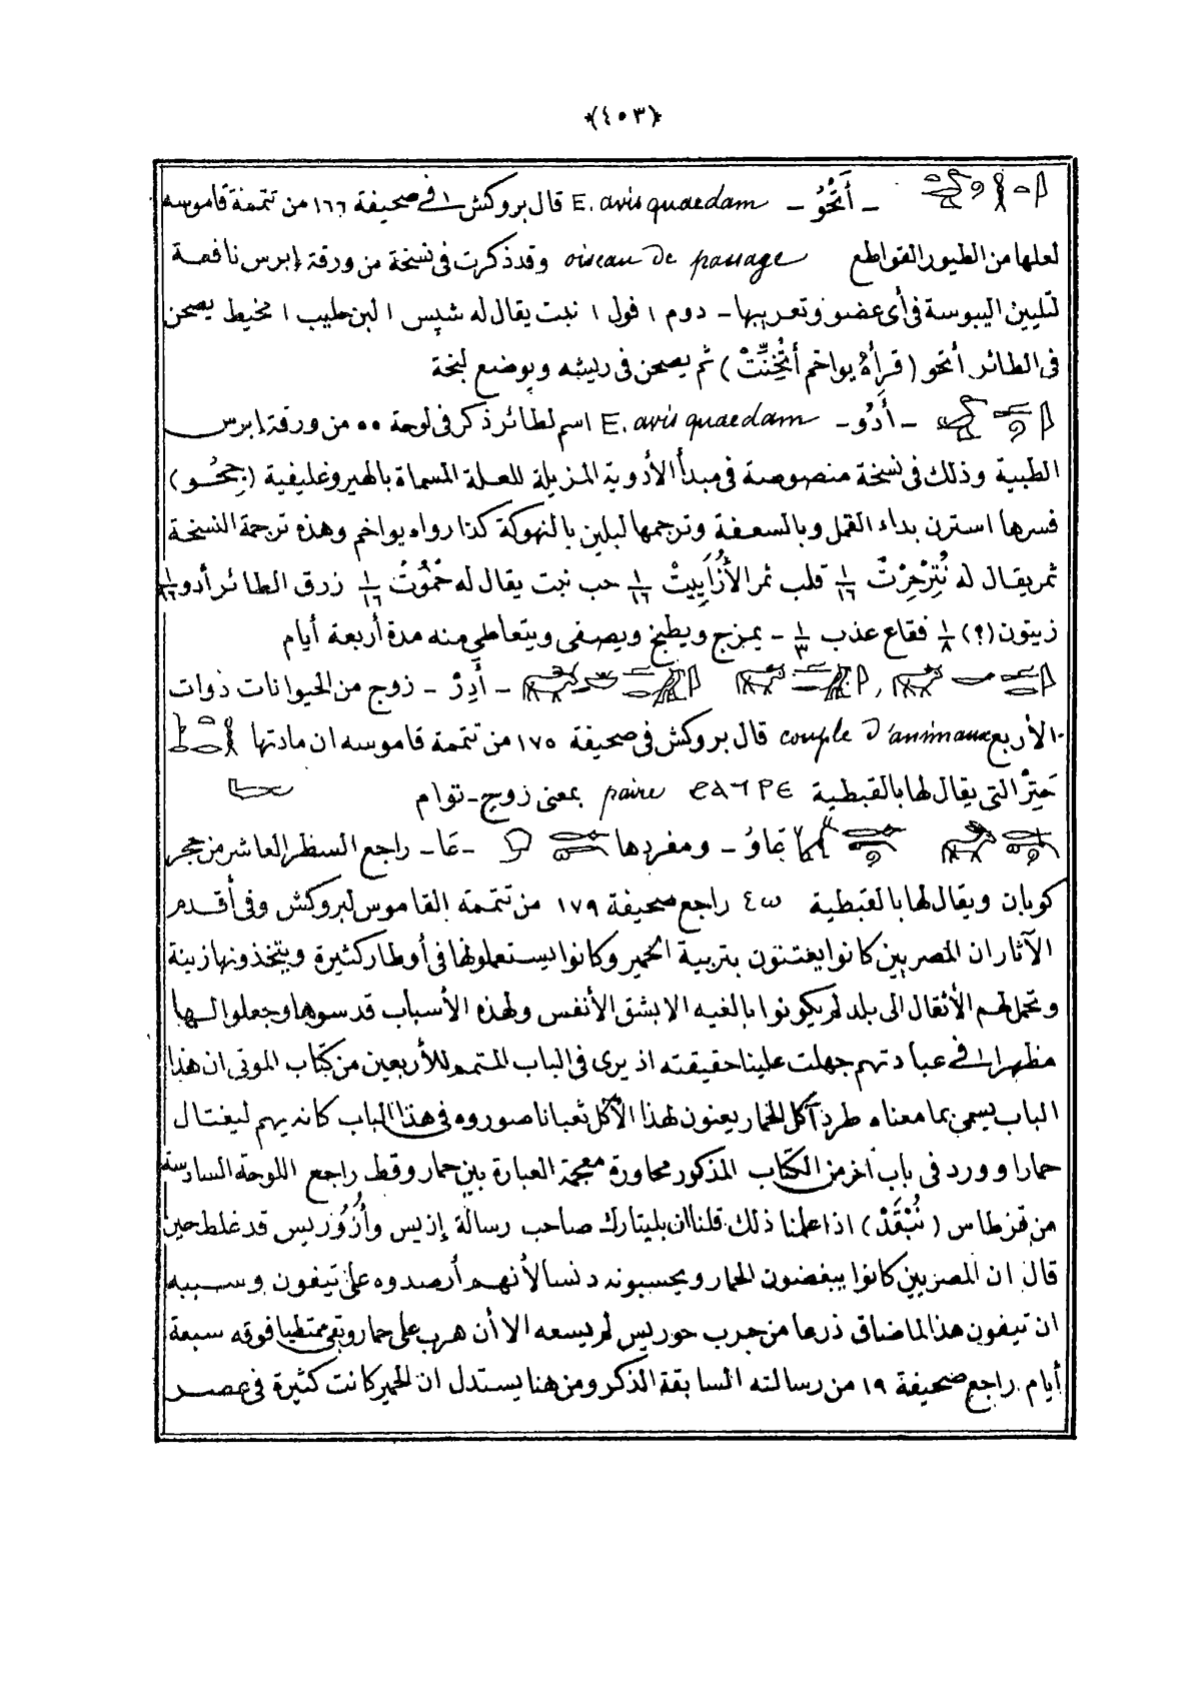 ﴿٤٠٣﴾
- أَتَّخُوُ - E. avis quaedam قال بروكش باشا في صحيفة ١٦٦ من تتمة قاموسه
لعلها من الطيور القواطع oiseau de passage وقد ذكرت في نسخة من ورقة إبرس نافعة
لتليين اليبوسة في أي عضو وتعريبها - دوم ١ فول ١ نبت يقال له شپس ١ لبن حليب ١ مخيط يصحن
في الطائر أتخو (قرأهُ يواخم أَتْخِنِّتْ) ثم يصحن في ريشه ويوضع لبخة
- أَدُو - E. avis quaedam اسم لطائر ذكر في لوحة ٥٥ من ورقة إبرس
الطبية وذلك في نسخة منصوصة في مبدأ الأدوية المزيلة للعلة المسماة بالهيروغليفية (جِحُو)
فسرها استرن بداء القمل وبالسعفة وترجمها لبلين بالنهوكة كذا رواه يواخم وهذه ترجمة النسخة
ثمر يقال له نُتِزْحِزْتْ ١/١٦ قلب ثمر الأُزَاپِيتْ ١/١٦ حب نبت يقال له خَمُوتْ ١/١٦ زرق الطائر أدو ١/١٦
زيتون (؟) ١/٨ فقاع عذب ١/٣ - يمزج ويطبخ ويصفى ويتعاطي منه مدة أربعة أيام
- أَدِرْ - زوج من الحيوانات ذوات
الأربع couple d'animaux قال بروكش في صحيفة ١٧٥ من تتمة قاموسه ان مادتها
حَتِرْ التي يقال لها بالقبطية ϩⲁⲧⲣⲉ paire بمعنى زوج - توام
عَاوُ - ومفردها - عَا - راجع السطر العاشر من حجر
كوبان ويقال لها بالقبطية ⲉⲱ راجع صحيفة ١٧٩ من تتمة القاموس لبروكش وفي أقدم
الآثار ان المصريين كانوا يعتنون بتربية الحمير وكانوا يستعملونها في أوطار كثيرة ويتخذونها زينة
وتحمل لهم الأثقال الى بلد لم يكونوا بالغيه الا بشق الأنفس ولهذه الأسباب قدسوها وجعلوا لها
مظهرا في عبادتهم جهلت علينا حقيقته اذ يرى في الباب المتمم للأربعين من كتاب الموتى ان هذا
الباب يسمى بما معناه طرد آكل الحمار يعنون لهذا الآكل ثعبانا صوروه في هذا الباب كانه يهم ليغتال
حمارا وورد في باب آخر من الكتاب المذكور محاورة معجمة العبارة بين حمار وقط راجع اللوحة السادسة
من قرطاس (نُبْقَدْ) اذا علمنا ذلك قلنا ان بليتارك صاحب رسالة إزيس وأُزُوريس قد غلط حين
قال ان المصريين كانوا يبغضون الحمار ويحسبونه دنسا لأنهم أرصدوه على تيفون وسببه
ان تيفون هذا لما ضاق ذرعا من حرب حوريس لم يسعه الا أن هرب على حمار وبقي ممتطيا فوقه سبعة
أيام راجع صحيفة ١٩ من رسالته السابقة الذكر ومن هنا يستدل ان الحمير كانت كثيرة في عصر